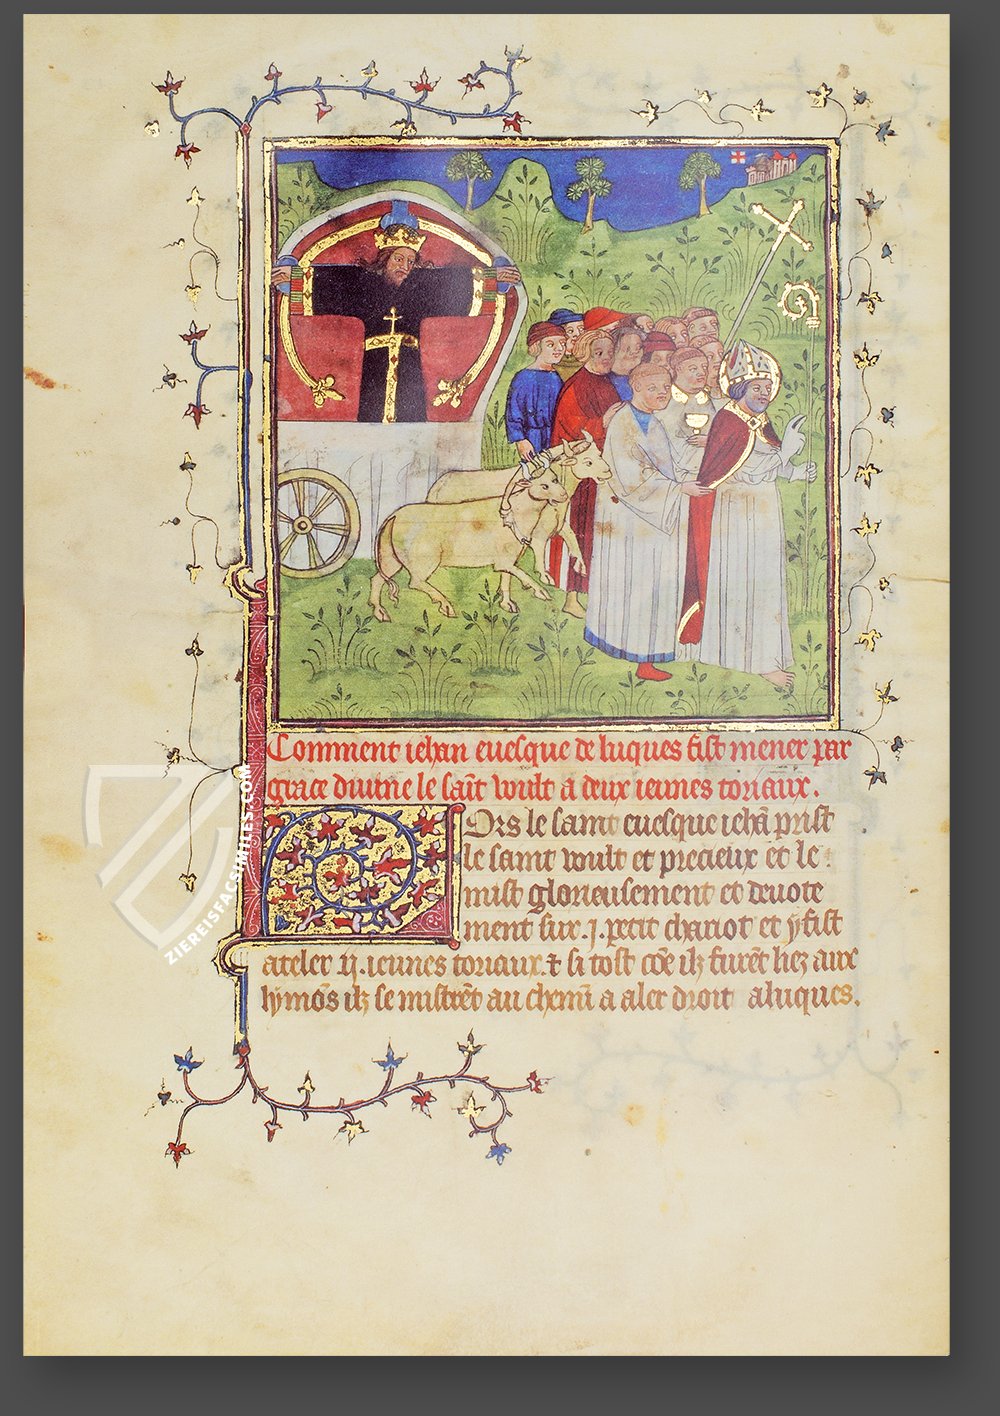 Comment iehan euesque de luques fist mener par
grace diuine le saĩt voult a deux ieunes toriaux.
Ors le saint euesque iehã prist
le saint voult et precieux et le
mist glorieusement et deuote
ment sur .j. petit chariot et y fist
ateler .ij. ieunes toriaux. & si tost cõe ilz furẽt liez aux
lymõs ilz se mistrẽt au chemĩ a aler droit a luques.
ZIEREISFACSIMILES.COM